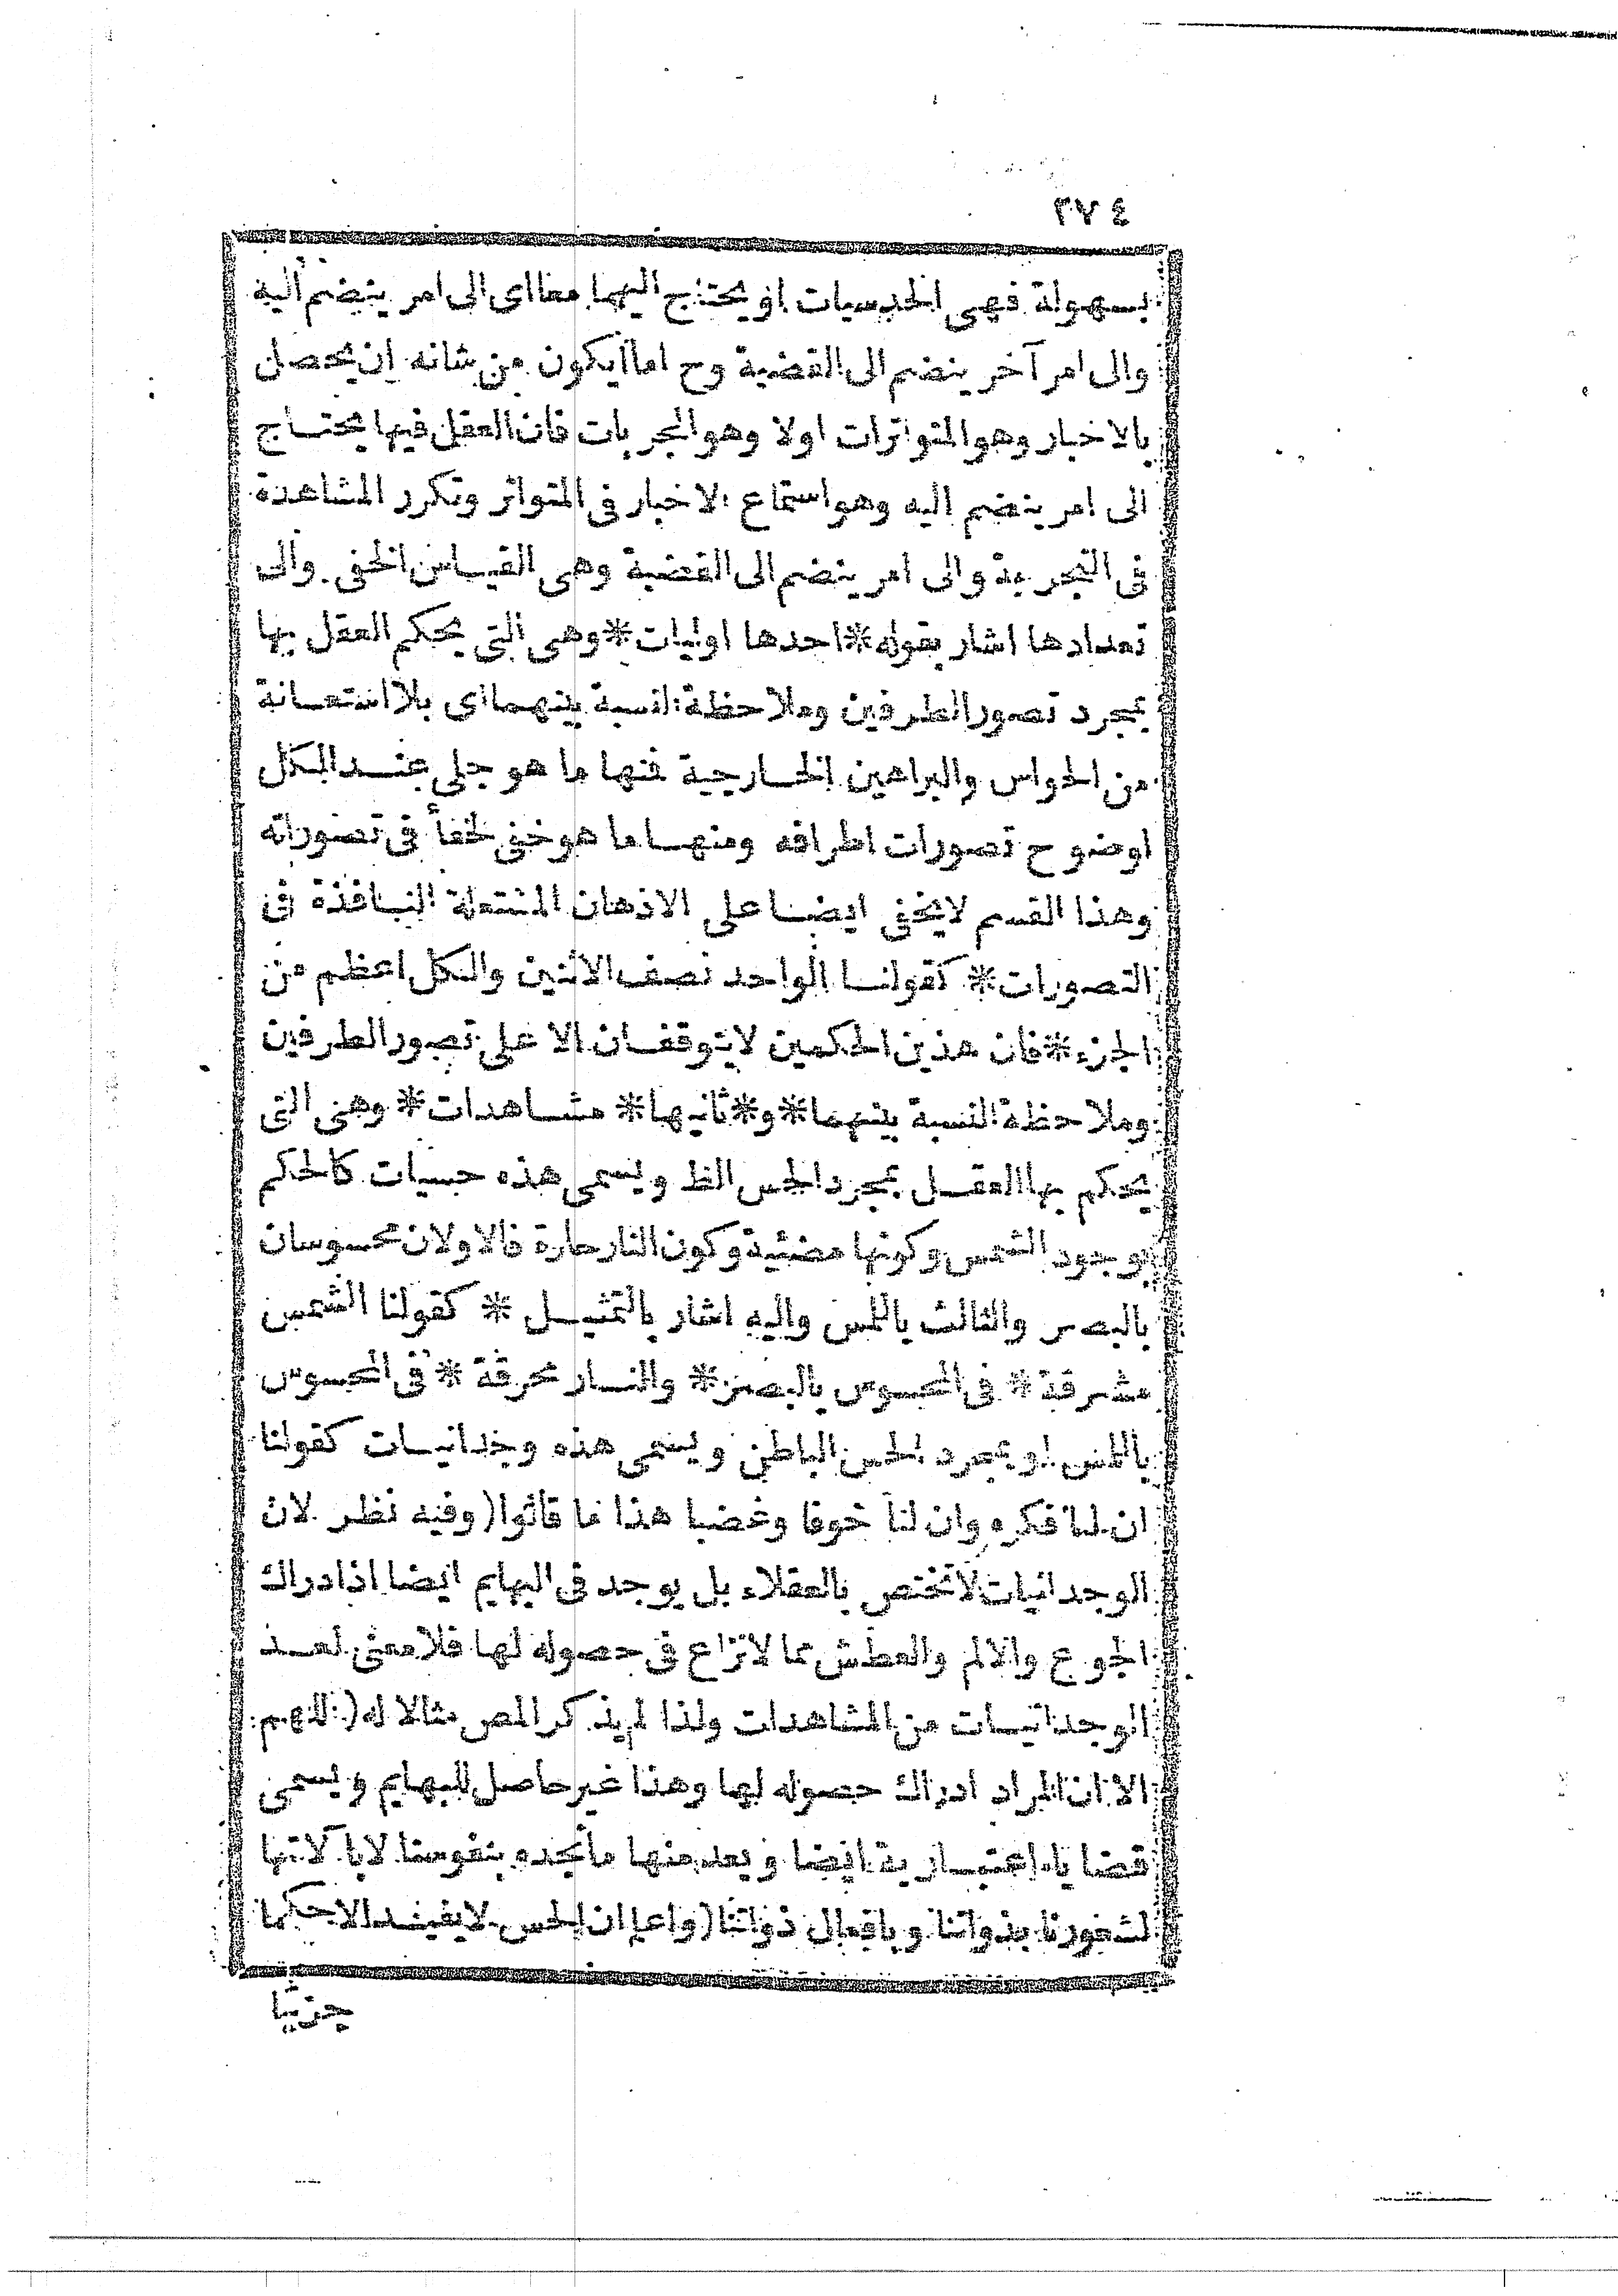 ٢٧٤
بسهولة فهى الحدسيات او يحتاج اليهما معا اى الى امر ينضم اليه
والى امر آخر ينضم الى القضية وح اما ايكون من شانه ان يحصل
بالاخبار وهو المتواترات اولا وهو المجربات فان العقل فيها يحتاج
الى امر ينضم اليه وهو استماع الاخبار فى المتواتر وتكرر المشاهدة
فى التجربة والى امر ينضم الى القضية وهى القياس الخفى والى
تعدادها اشار بقوله * احدها اوليات * وهى التى يحكم العقل بها
بمجرد تصور الطرفين وملاحظة النسبة بينهما اى بلا استعانة
من الحواس والبراهين الخارجية فمنها ما هو جلى عند الكل
اوضوح تصورات اطرافه ومنها ما هو خفى لخفأ فى تصوراته
وهذا القسم لا يخفى ايضا على الاذهان المشتعلة النافذة فى
التصورات * كقولنا الواحد نصف الاثنين والكل اعظم من
الجزء * فان هذين الحكمين لا يتوقفان الا على تصور الطرفين
وملاحظة النسبة بينهما * و * ثانيها * مشاهدات * وهى التى
يحكم بها العقل بمجرد الحس الظ ويسمى هذه حسيات كالحكم
بوجود الشمس وكونها مضيئة وكون النار حارة فالاولان محسوسان
بالبصر والثالث باللمس واليه اشار بالتمثيل * كقولنا الشمس
مشرقة * فى المحسوس بالبصر * والنار محرقة * فى المحسوس
باللمس او بمجرد الحس الباطن ويسمى هذه وجدانيات كقولنا
ان لنا فكره وان لنا خوفا وغضبا هذا ما قالوا ( وفيه نظر لان
الوجدانيات لا تختص بالعقلاء بل يوجد فى البهايم ايضا اذ ادراك
الجوع والالم والعطش مما لا نزاع فى حصوله لها فلا معنى لعد
الوجدانيات من المشاهدات ولذا لم يذكر المص مثالا له ( اللهم
الا ان المراد ادراك حصوله لها وهذا غير حاصل للبهايم ويسمى
قضايا اعتبارية ايضا ويعد منها ما نجده بنفوسنا لا بآلاتها
لشعورنا بذواتنا وبافعال ذواتنا ( واعلم ان الحس لا يفيد الا حكما
جزئيا